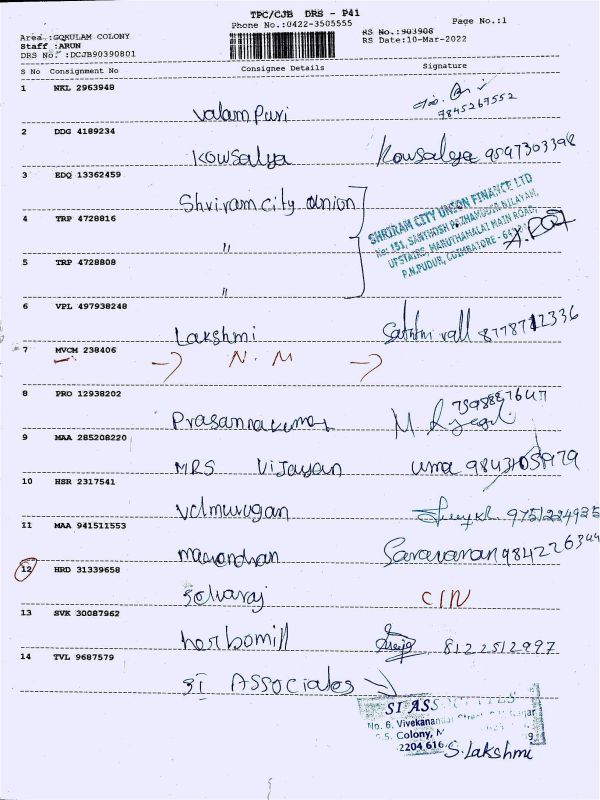 TPC/CJB DRS - P41
Phone No.:0422-3505555
Page No.:1
Area :GOKULAM COLONY
Staff :ARUN
DRS No. :DCJB90390801
RS No.:903908
RS Date:10-Mar-2022
S No Consignment No Consignee Details Signature
1 NKL 2963948
valampuri
7845267552
2 DDG 4189234
Kowsalya Kowsalya 9597303398
3 EDQ 13362459
Shriram city union
SHRIRAM CITY UNION FINANCE LTD
No: 151, SANTHOSH NILAYAM,
UPSTAIRS, MARUTHAMALAI MAIN ROAD,
P.N.PUDUR, COIMBATORE - 64
4 TRP 4728816
"
5 TRP 4728808
"
6 VPL 497938248
Lakshmi
7 MVCM 238406
N. M
8 PRO 12938202
Prasannakumar
9 MAA 285208220
MRS Vijayan uma
10 HSR 2317541
Velmurugan
11 MAA 941511553
Saravanan
12 HRD 31339658
Selvaraj
13 SVK 30087962
herbomill 8122512997
14 TVL 9687579
SI Associates
SI ASS
No. 6, Vivekanandar
Colony,
2204 616
S. Lakshmi